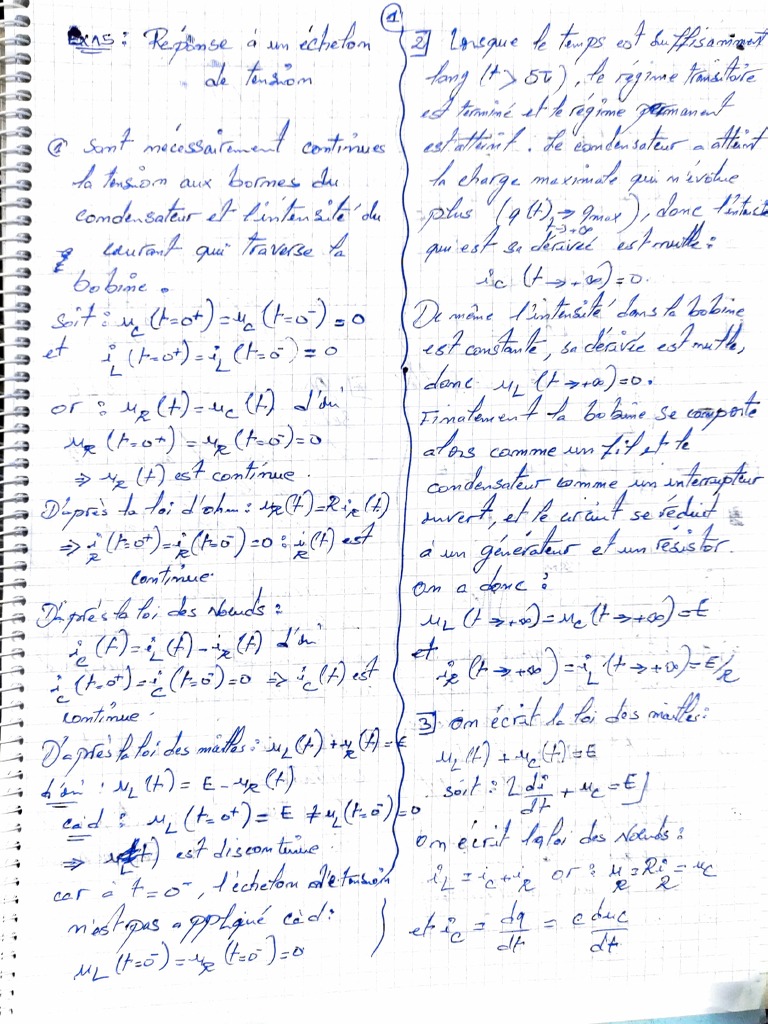 1
EXA5 : Réponse à un échelon
de tension
① Sont nécessairement continues
la tension aux bornes du
condensateur et l'intensité du
courant qui traverse la
bobine.
soit : u_C (t=0⁺) = u_C (t=0⁻) = 0
et i_L (t=0⁺) = i_L (t=0⁻) = 0
or : u_R (t) = u_C (t) d'où
u_R (t=0⁺) = u_R (t=0⁻) = 0
⇒ u_R (t) est continue.
D'après la loi d'ohm : u_R (t) = R i_R (t)
⇒ i_R (t=0⁺) = i_R (t=0⁻) = 0 : i_R (t) est
continue.
D'après la loi des Nœuds :
i_C (t) = i_L (t) - i_R (t) d'où
i_C (t=0⁺) = i_C (t=0⁻) = 0 ⇒ i_C (t) est
continue.
D'après la loi des mailles : u_L (t) + u_R (t) = E
d'où : u_L (t) = E - u_R (t)
càd : u_L (t=0⁺) = E ≠ u_L (t=0⁻) = 0
⇒ u_L (t) est discontinue
car à t=0⁻, l'échelon de tension
n'est pas appliqué càd :
u_L (t=0⁻) = u_R (t=0⁻) = 0
2] Lorsque le temps est suffisamment
long (t > 5τ), le régime transitoire
est terminé et le régime permanent
est atteint. Le condensateur a atteint
la charge maximale qui n'évolue
plus (q(t) → q_max), donc l'intensité
t→+∞
qui est sa dérivée est nulle :
i_C (t → +∞) = 0.
De même l'intensité dans la bobine
est constante, sa dérivée est nulle,
donc u_L (t → +∞) = 0.
Finalement la bobine se comporte
alors comme un fil et le
condensateur comme un interrupteur
ouvert, et le circuit se réduit
à un générateur et un résistor.
on a donc :
u_L (t → +∞) = u_C (t → +∞) = E
et
i_R (t → +∞) = i_L (t → +∞) = E/R
3] on écrit la loi des mailles :
u_L (t) + u_C (t) = E
soit : L di/dt + u_C = E]
on écrit la loi des Nœuds :
i_L = i_C + i_R or : u_R = R i_R = u_C
et i_C = dq/dt = C du_C/dt